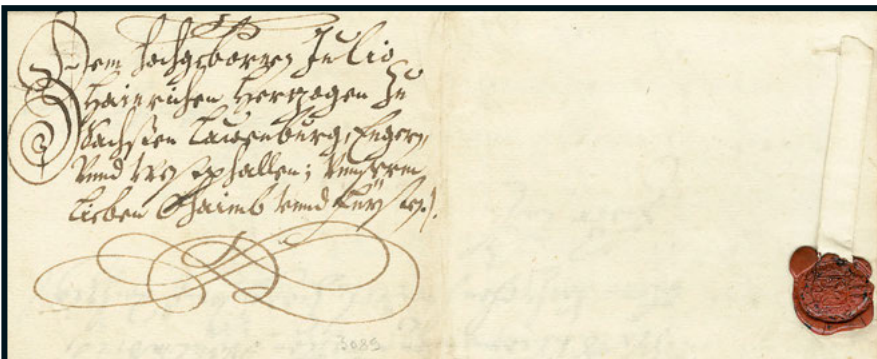 Dem Hochgebornen Julio
Hainrichen Herzogen Zu
Sachssen Lauenburg, Engern,
Vnnd Westphallen; Vnnserm
Lieben Ohaimb Vnnd Fürsten.
3089